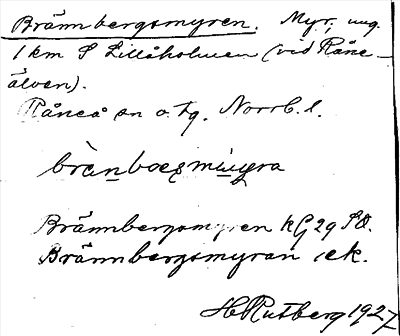 Brännbergsmyren. Myr, ung.
1 km S Lillåholmen (vid Råne-
älven).
Råneå sn o. tg. Norrb. l.
Brännbergsmyren kG 29 SO.
Brännbergsmyran ek.
H Rutberg 1927